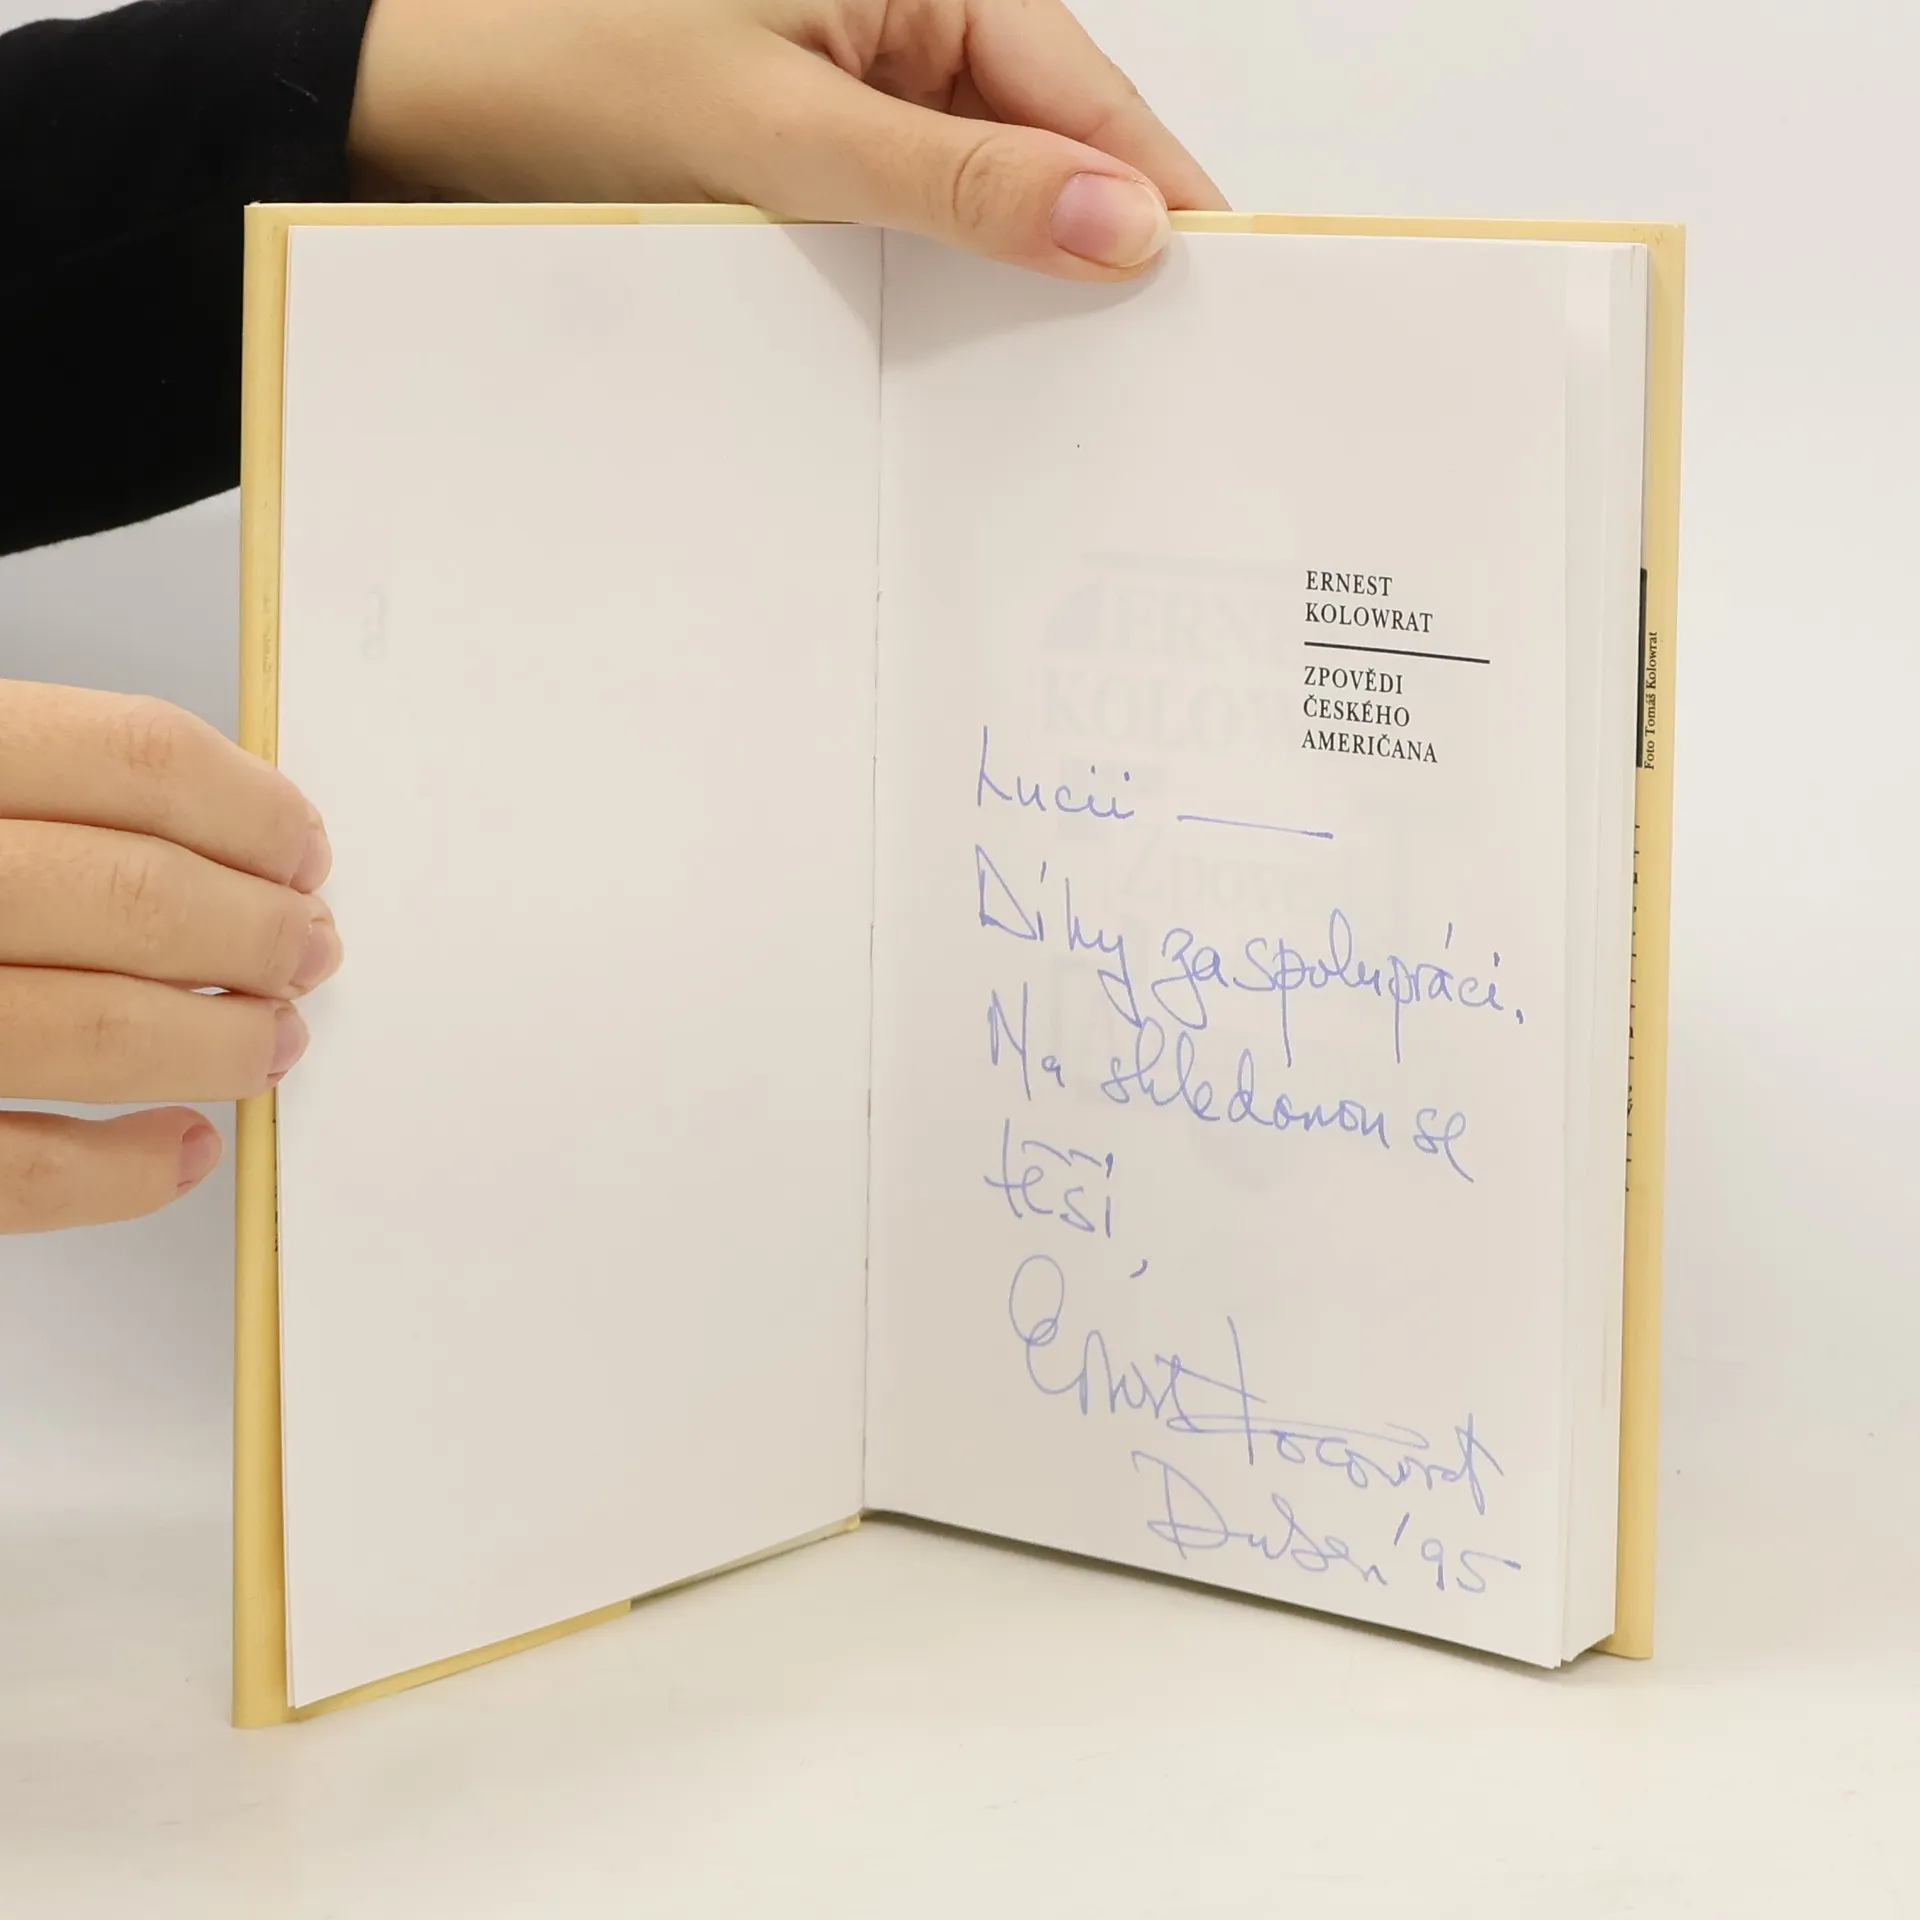 ERNEST
KOLOWRAT
ZPOVĚDI
ČESKÉHO
AMERIČANA
Foto Tomáš Kolowrat
Lucii
Díky za spolupráci.
Na shledanou se
těší,
Ernest Kolowrat
Duben '95